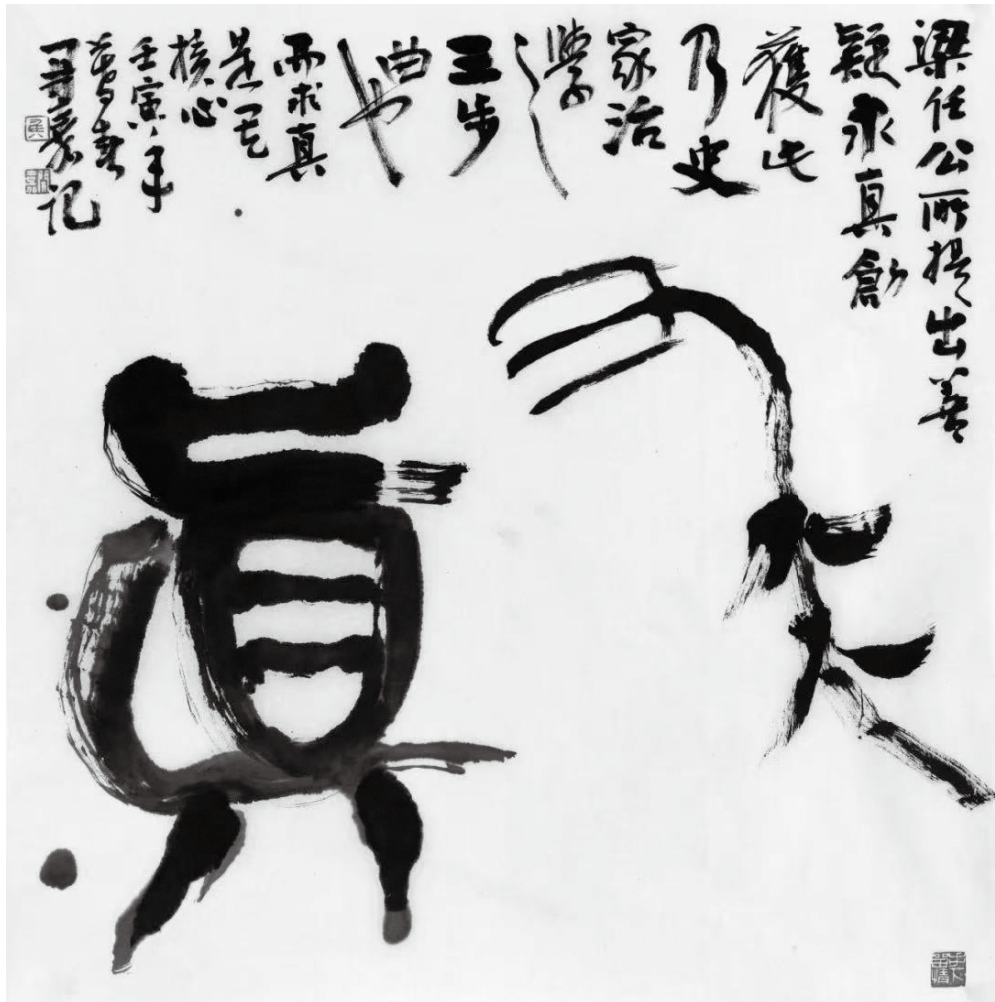 求真
梁任公所提出善
疑求真創
獲此
乃史
家治
學之
三步
曲也
而求真
是其
核心
壬寅年
春
记